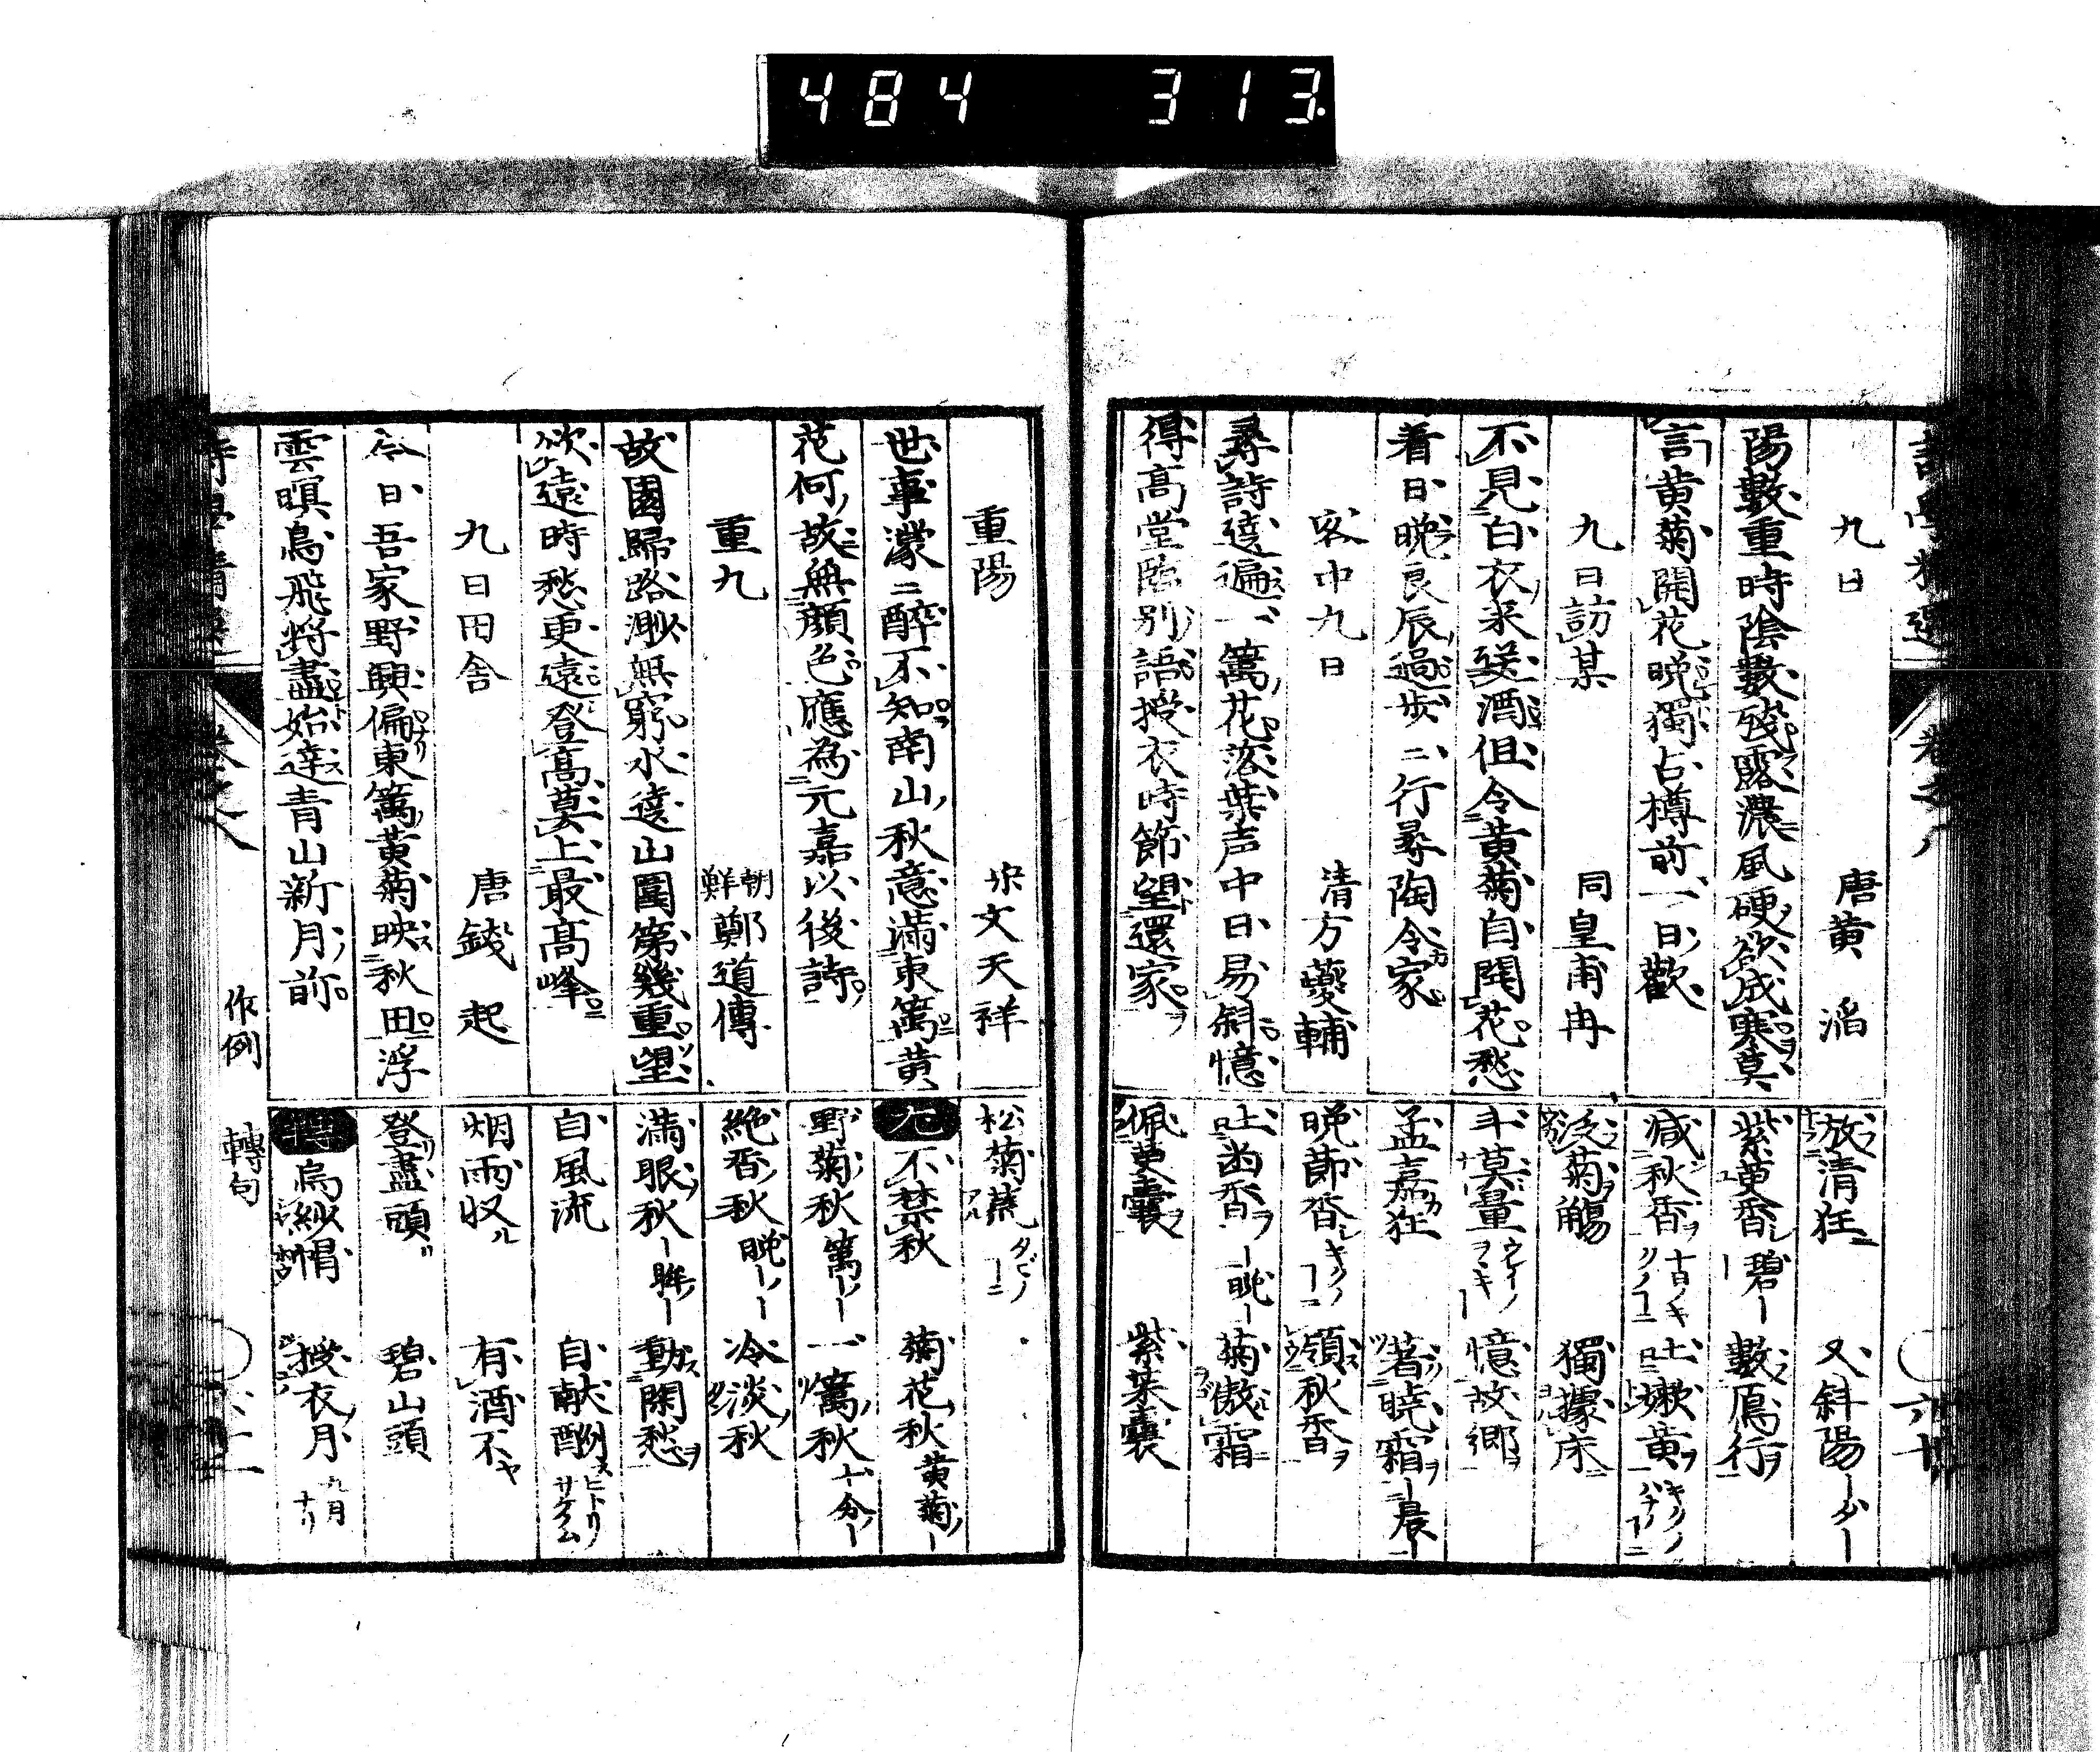 484 313
九日 唐黄滔
陽數重時陰數殘露濃風硬欲成寒莫
言黄菊開花晩獨占樽前一日歡
九日訪某 同皇甫冉
不見白衣来送酒但令黄菊自開花愁
看日晩良辰過歩二行尋陶令家
客中九日 清方夔輔
尋詩遶遍一篱花落葉声中日易斜憶
得高堂臨別語授衣時節望還家
放清狂 又斜陽
紫萸香 碧 數鴈行
減秋香 吐嫩黄
泛菊觴 獨據床
斗莫量 憶故郷
孟嘉狂 著曉霜 晨
晩節香 領秋香
吐幽香 晩 菊傲霜
佩萸囊 紫茱囊
重陽 宋文天祥
世事濛二醉不知南山秋意滿東篱黄
花何故無顔色應為元嘉以後詩
重九 朝鮮鄭道傳
故園歸路渺無窮水遶山圍第幾重望
欲遠時愁更遠登高莫上最高峰
九日田舎 唐錢起
今日吾家野興偏東篱黄菊映秋田浮
雲暝鳥飛將盡始達青山新月前
作例 轉句
松菊荒
尤 不禁秋 菊花秋 黄菊
野菊秋 篱 一篱秋 十分
絶香秋 晩 冷淡秋
滿眼秋 眸 動閑愁
自風流 自献酬
烟雨収 有酒不
登盡頭 碧山頭
轉 烏紗帽 授衣月 九月ナリ